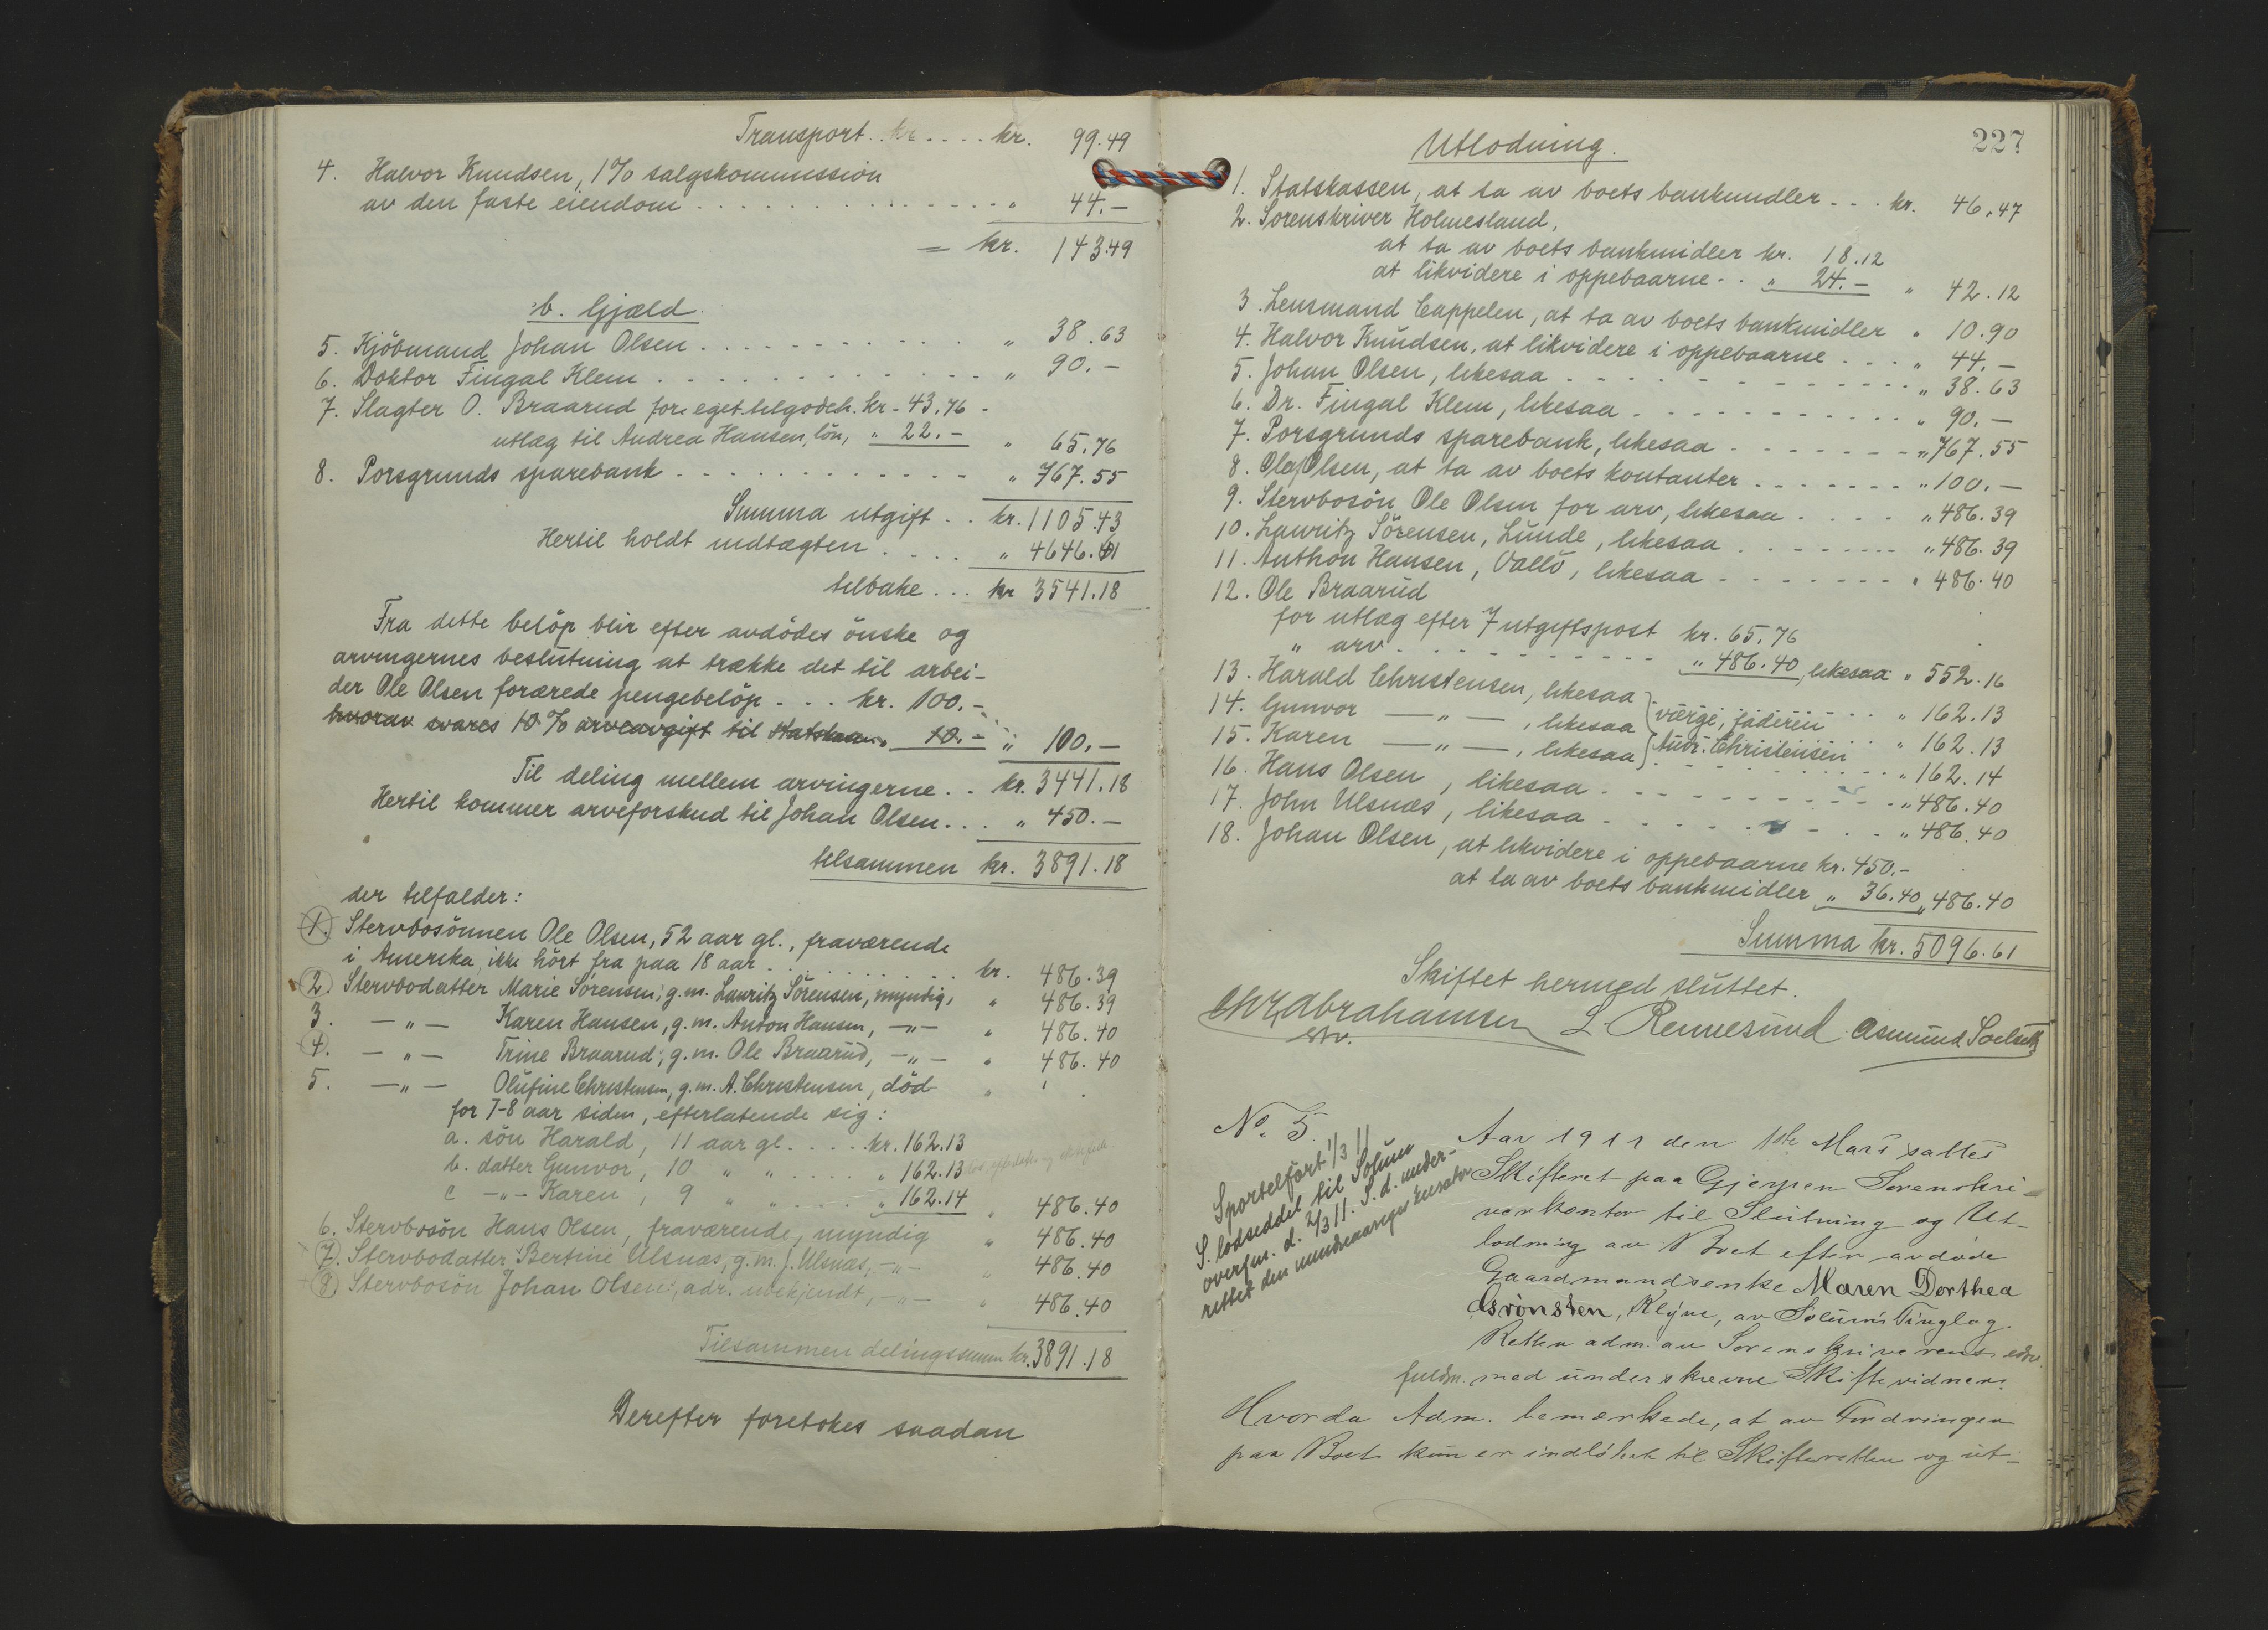 Transport . . kr . . . . kr. 99.49
4. Halvor Knudsen, 1% salgskommission
av den faste eiendom . . . . . . . . . . . . . . „ 44.—
= kr. 143.49
b. Gjæld.
5. Kjöbmand Johan Olsen . . . . . . . . . . . „ 38.63
6. Doktor Fingal Klem . . . . . . . . . . . . . „ 90.—
7. Slagter O. Braarud for eget tilgodeh. kr. 43.76
utlæg til Andrea Hansen, lön, „ 22.— „ 65.76
8. Porsgrunds sparebank . . . . . . . . . . . „ 767.55
Summa utgift . . kr. 1105.43
Hertil holdt indtægten . . . . „ 4646.61
tilbake . . . kr 3541.18
Fra dette belöp blir efter avdödes önske og
arvingernes beslutning at trække det til arbei-
der Ole Olsen forærede pengebelöp . . . kr. 100.—
hvorav svares 10% arveavgift til Statskassen „ 10.— „ 100.—
Til deling mellem arvingerne . . kr. 3441.18
Hertil kommer arveforskud til Johan Olsen . . . „ 450.—
tilsammen kr. 3891.18
der tilfalder:
1. Stervbosönnen Ole Olsen, 52 aar gl., fraværende
i Amerika, ikke hört fra paa 18 aar . . . . . . . . . . kr. 486.39
2. Stervbodatter Marie Sörensen, g.m. Lauritz Sörensen, myndig, „ 486.39
3. —„— Karen Hansen, g.m. Anton Hansen, —„— „ 486.40
4. —„— Trine Braarud, g.m. Ole Braarud, —„— „ 486.40
5. —„— Olufine Christensen, g.m. A. Christensen, död
for 7-8 aar siden, efterlatende sig:
a. sön Harald, 11 aar gl. . . . . kr. 162.13
b. datter Gunvor, 10 „ „ . . . . „ 162.13
c —„— Karen, 9 „ „ . . . . „ 162.14 „ 486.40
6. Stervbosön Hans Olsen, fraværende, myndig „ 486.40
7. Stervbodatter Bertine Ulsnæs, g.m. J. Ulsnæs, —„— „ 486.40
8. Stervbosön Johan Olsen, adr. ubekjendt, —„— „ 486.40
Tilsammen delingssum kr. 3891.18
Derefter foretokes saadan
227
Utlodning.
1. Statskassen, at ta av boets bankmidler . . . kr. 46.47
2. Sorenskriver Holmesland,
at ta av boets bankmidler kr. 18.12
at likvidere i oppebaarne . . „ 24.— „ 42.12
3. Lensmand Cappelen, at ta av boets bankmidler „ 10.90
4. Halvor Knudsen, at likvidere i oppebaarne . . . „ 44.—
5. Johan Olsen, likesaa . . . . . . . . . . . . „ 38.63
6. Dr. Fingal Klem, likesaa . . . . . . . . . . „ 90.—
7. Porsgrunds sparebank, likesaa . . . . . . . „ 767.55
8. Ole Olsen, at ta av boets kontanter . . . . . . . „ 100.—
9. Stervbosön Ole Olsen for arv, likesaa . . . . „ 486.39
10. Lauritz Sörensen, Lunde, likesaa . . . . . . . „ 486.39
11. Anthon Hansen, Vallö, likesaa . . . . . . . „ 486.40
12. Ole Braarud
for utlæg efter 7 utgiftspost kr. 65.76
„ arv . . . . . . . . . . . „ 486.40, likesaa „ 552.16
13. Harald Christensen, likesaa . . . „ 162.13
14. Gunvor —„—, likesaa værge, faderen . . „ 162.13
15. Karen —„—, likesaa Andr. Christensen . . „ 162.14
16. Hans Olsen, likesaa . . . . . . . . . . „ 486.40
17. John Ulsnæs, likesaa . . . . . . . . . „ 486.40
18. Johan Olsen, at likvidere i oppebaarne kr. 450.—
at ta av boets bankmidler „ 36.40 „ 486.40
Summa kr. 5096.61
Skiftet hermed sluttet.
Chr. Abrahamsen L. Rennesund Asmund
No. 5.
Sportelfört 1/3 11
S. lodseddel til Solum
overfm. d. 2/3 11. S. d. under-
rettet den mindreaariges kurator
Aar 1911 den 1ste Mars sattes
Skifteret paa Gjerpen Sorenskri-
verkontor til Slutning og Ut-
lodning av Boet efter avdöde
Gaardmandsenke Maren Dorthea
Grönsten, Klyve, av Solum's Tinglag.
Retten adm. av Sorenskriverens edsv.
fuldm. med underskrevne Skiftevidner.
Hvorda Adm. bemærkede, at av Fordringer
paa Boet kun er indlöbet til Skifteretten og ut-